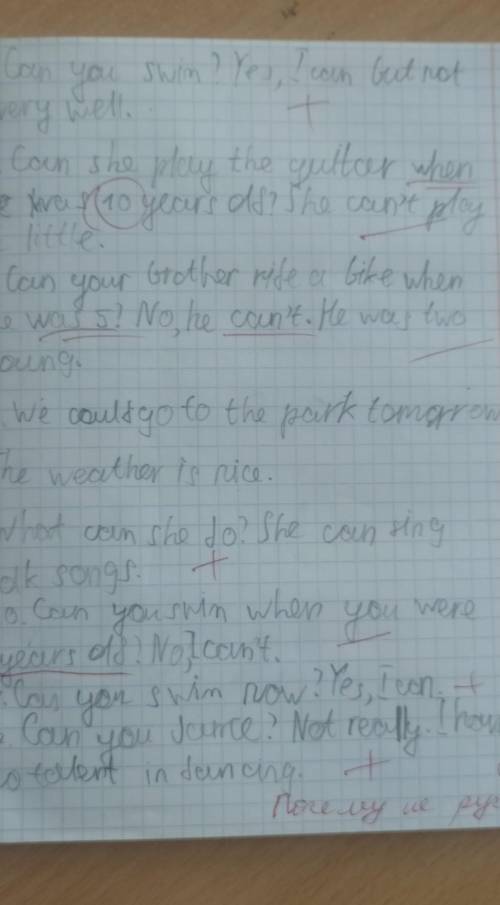 Can you swim? Yes, I can but not
very well. +
Can she play the guitar when
e was 10 years old? She can't play
little.
Can your brother ride a bike when
e was 5? No, he can't. He was two
oung.
We could go to the park tomorrow
he weather is nice.
What can she do? She can sing
olk songs. +
0. Can you swim when you were
years old? No, I can't.
Can you swim now? Yes, I can. +
Can you dance? Not really. I hav
o talent in dancing. +
Почему не